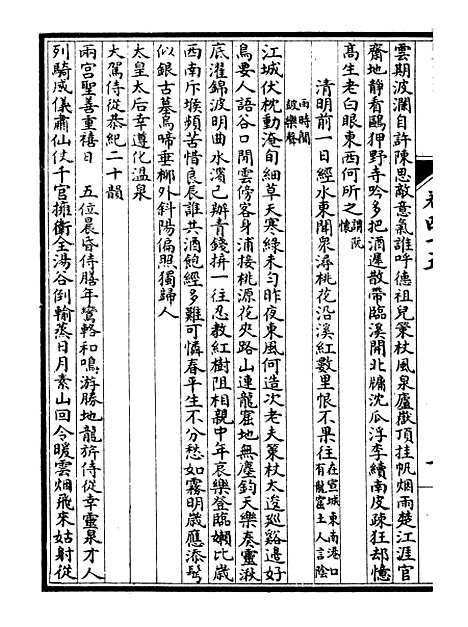 雲期波瀾自許陳思敵意氣誰呼德祖兒筆杖風泉廬嶽頂挂帆烟雨楚江涯官
齋地静看鷗狎野寺吟多把酒遲散帶臨溪開北牖沈瓜浮李續南皮疎狂却憶
高生老白眼東西何所之謂阮懷
清明前一日經水東聞衆潯桃花沿溪紅數里恨不果往在宣城東南港口有龍窟土人言陰
雨時聞鈒樂聲
江城伏枕動淹旬細草天寒綠未勻昨夜東風何造次老夫策杖太逡巡谿邊好
鳥要人語谷口閒雲傍客身浦接桃源花夾路山連龍窟地無塵鈞天樂奏靈湫
底濯錦波明曲水濱已辦青錢拚一往忍教紅樹阻相親中年哀樂登臨嬾比歲
西南斥堠頻苦惜良辰誰共酒飽經多難可憐春平生不分愁如霧明歲應添髩
似銀古墓烏啼垂柳外斜陽偏照獨歸人
太皇太后幸遵化温泉
大駕侍從恭紀二十韻
兩宫聖善重禧日 五位晨昏侍膳年鸞輅和鳴游勝地龍旂侍從幸靈泉才人
列騎威儀肅仙仗千官擁衛全湯谷倒輸蒸日月素山回合暖雲烟飛來姑射從
卷四十五